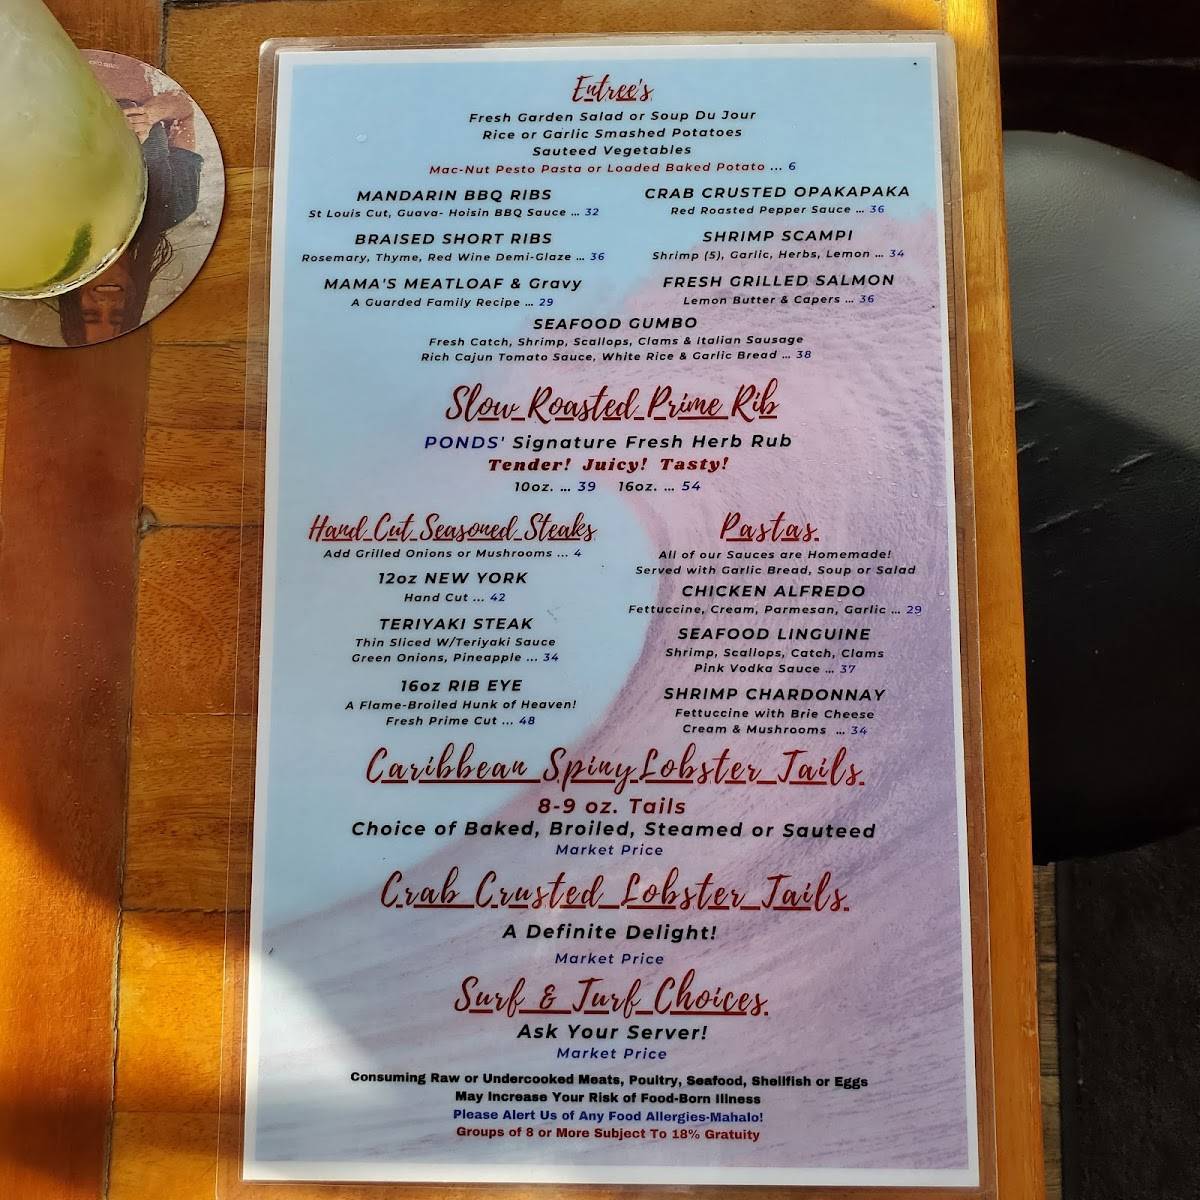 Entree's
Fresh Garden Salad or Soup Du Jour
Rice or Garlic Smashed Potatoes
Sauteed Vegetables
Mac-Nut Pesto Pasta or Loaded Baked Potato ... 6
MANDARIN BBQ RIBS
St Louis Cut, Guava- Hoisin BBQ Sauce ... 32
BRAISED SHORT RIBS
Rosemary, Thyme, Red Wine Demi-Glaze ... 36
MAMA'S MEATLOAF & Gravy
A Guarded Family Recipe ... 29
CRAB CRUSTED OPAKAPAKA
Red Roasted Pepper Sauce ... 36
SHRIMP SCAMPI
Shrimp (5), Garlic, Herbs, Lemon ... 34
FRESH GRILLED SALMON
Lemon Butter & Capers ... 36
SEAFOOD GUMBO
Fresh Catch, Shrimp, Scallops, Clams & Italian Sausage
Rich Cajun Tomato Sauce, White Rice & Garlic Bread ... 38
Slow Roasted Prime Rib
PONDS' Signature Fresh Herb Rub
Tender! Juicy! Tasty!
10oz. ... 39 16oz. ... 54
Hand Cut Seasoned Steaks
Add Grilled Onions or Mushrooms ... 4
12oz NEW YORK
Hand Cut ... 42
TERIYAKI STEAK
Thin Sliced W/Teriyaki Sauce
Green Onions, Pineapple ... 34
16oz RIB EYE
A Flame-Broiled Hunk of Heaven!
Fresh Prime Cut ... 48
Pastas
All of our Sauces are Homemade!
Served with Garlic Bread, Soup or Salad
CHICKEN ALFREDO
Fettuccine, Cream, Parmesan, Garlic ... 29
SEAFOOD LINGUINE
Shrimp, Scallops, Catch, Clams
Pink Vodka Sauce ... 37
SHRIMP CHARDONNAY
Fettuccine with Brie Cheese
Cream & Mushrooms ... 34
Caribbean Spiny Lobster Tails
8-9 oz. Tails
Choice of Baked, Broiled, Steamed or Sauteed
Market Price
Crab Crusted Lobster Tails
A Definite Delight!
Market Price
Surf & Turf Choices
Ask Your Server!
Market Price
Consuming Raw or Undercooked Meats, Poultry, Seafood, Shellfish or Eggs
May Increase Your Risk of Food-Born Illness
Please Alert Us of Any Food Allergies-Mahalo!
Groups of 8 or More Subject To 18% Gratuity